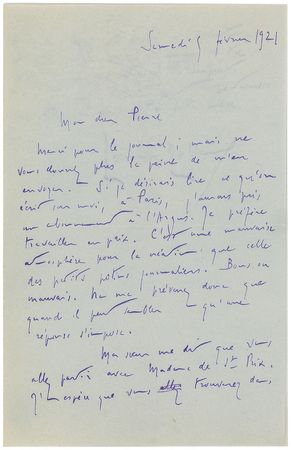 Samedi 5 février 1921
Mon cher Pierre
Merci pour le journal ; mais ne
vous donnez plus la peine de m'en
envoyer. Si je désirais lire ce qu'on
écrit sur moi, à Paris, j'aurais pris
un abonnement à l'Argus. Je préfère
travailler en paix. C'est une mauvaise
atmosphère pour la création que celle
des petits potins journaliers. Bons ou
mauvais. Ne me prévenez donc que
quand il peut sembler qu'une
réponse s'impose.
Ma sœur me dit que vous
allez partir avec Madame de St Prix.
J'espère que vous trouverez des